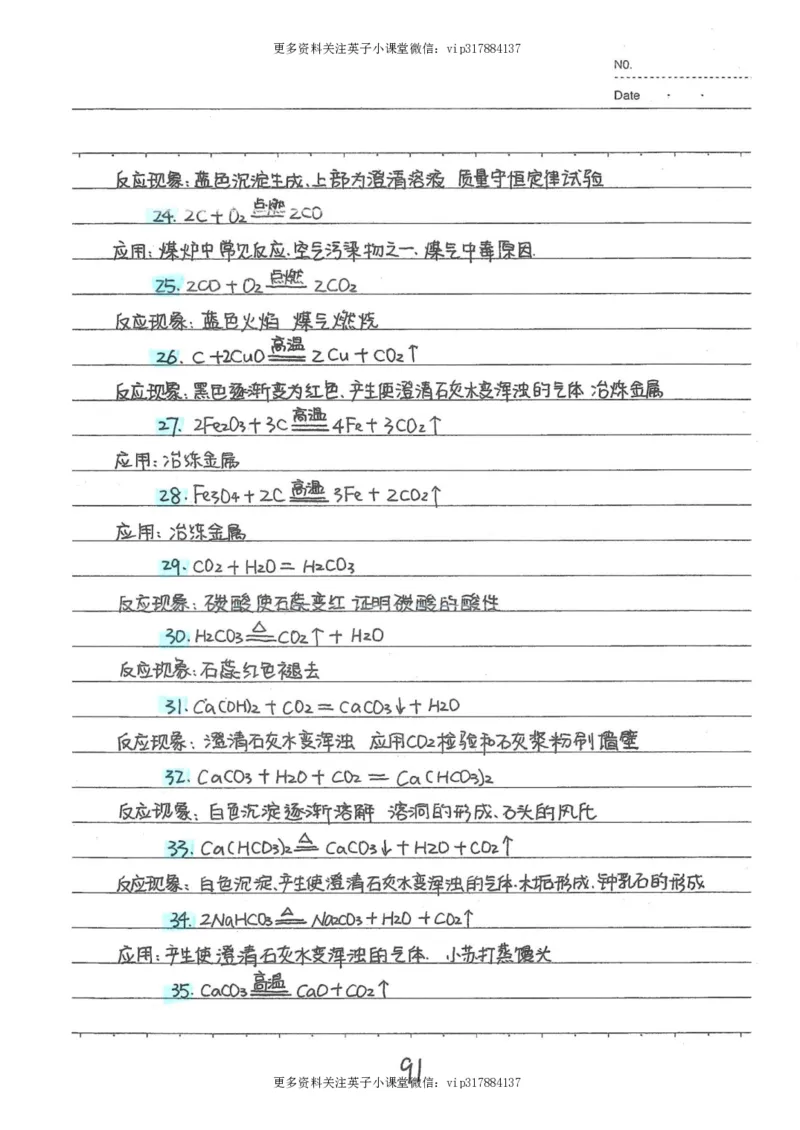 更多资料关注英子小课堂微信：vip317884137
N0.
Date
反应现象：蓝色沉淀生成、上部为澄清溶液 质量守恒定律试验
24. 2C + O2 点燃 2CO
应用：煤炉中常见反应、空气污染物之一、煤气中毒原因.
25. 2CO + O2 点燃 2CO2
反应现象：蓝色火焰 煤气燃烧
26. C +2CuO 高温 2Cu + CO2↑
反应现象：黑色逐渐变为红色、产生使澄清石灰水变浑浊的气体 冶炼金属
27. 2Fe2O3 + 3C 高温 4Fe + 3CO2↑
应用：冶炼金属
28. Fe3O4 + 2C 高温 3Fe + 2CO2↑
应用：冶炼金属
29. CO2 + H2O = H2CO3
反应现象：碳酸使石蕊变红 证明碳酸的酸性
30. H2CO3 △ CO2↑ + H2O
反应现象：石蕊红色褪去
31. Ca(OH)2 + CO2 = CaCO3↓ + H2O
反应现象：澄清石灰水变浑浊 应用CO2检验和石灰浆粉刷墙壁
32. CaCO3 + H2O + CO2 = Ca(HCO3)2
反应现象：白色沉淀逐渐溶解 溶洞的形成、石头的风化
33. Ca(HCO3)2 △ CaCO3↓ + H2O + CO2↑
反应现象：白色沉淀、产生使澄清石灰水变浑浊的气体.水垢形成.钟乳石的形成
34. 2NaHCO3 △ Na2CO3 + H2O + CO2↑
应用：产生使澄清石灰水变浑浊的气体. 小苏打蒸馒头
35. CaCO3 高温 CaO + CO2↑
91
更多资料关注英子小课堂微信：vip317884137